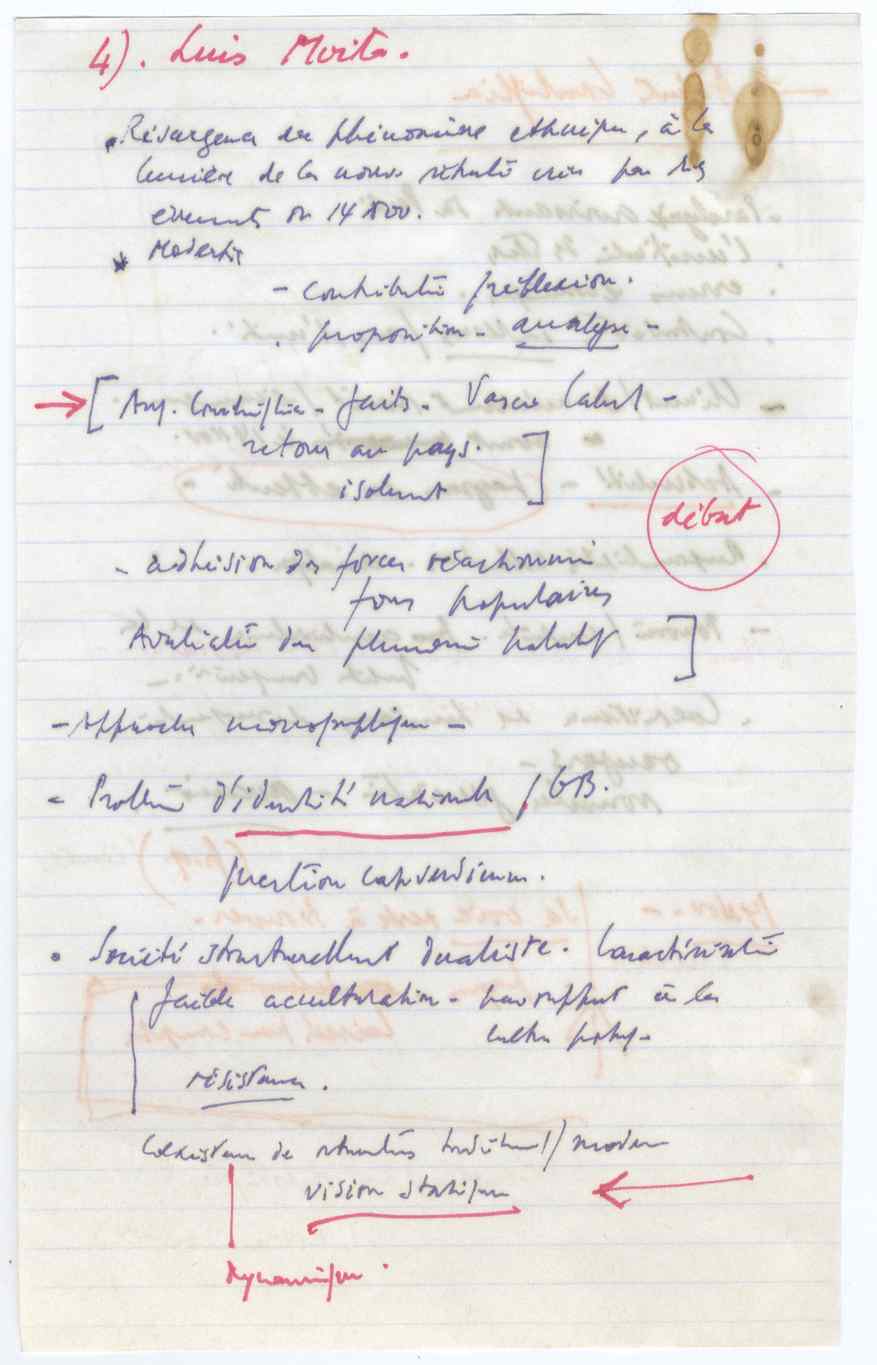 4). Luis Moita.
Résurgence du phénomène ethnique, à la
lumière de la nouv réalité créé par les
évenements du 14 Nov.
Modestie
- Contribution / réflexion.
. proposition - analyse -
→ [ - faits - Vasco Cabral -
retour au pays.
isolement ]
début
- adhésion des forces
forces populaires
du phénomène ]
- Approche monographique -
- Problème d'identité nationale / GB.
question capverdienne.
• Société structurellement dualiste. Caractérisation
faible acculturation - par rapport à la
culture portug-
résistance.
Coexistence de structures tradition// modern
vision statique
Dynamique.